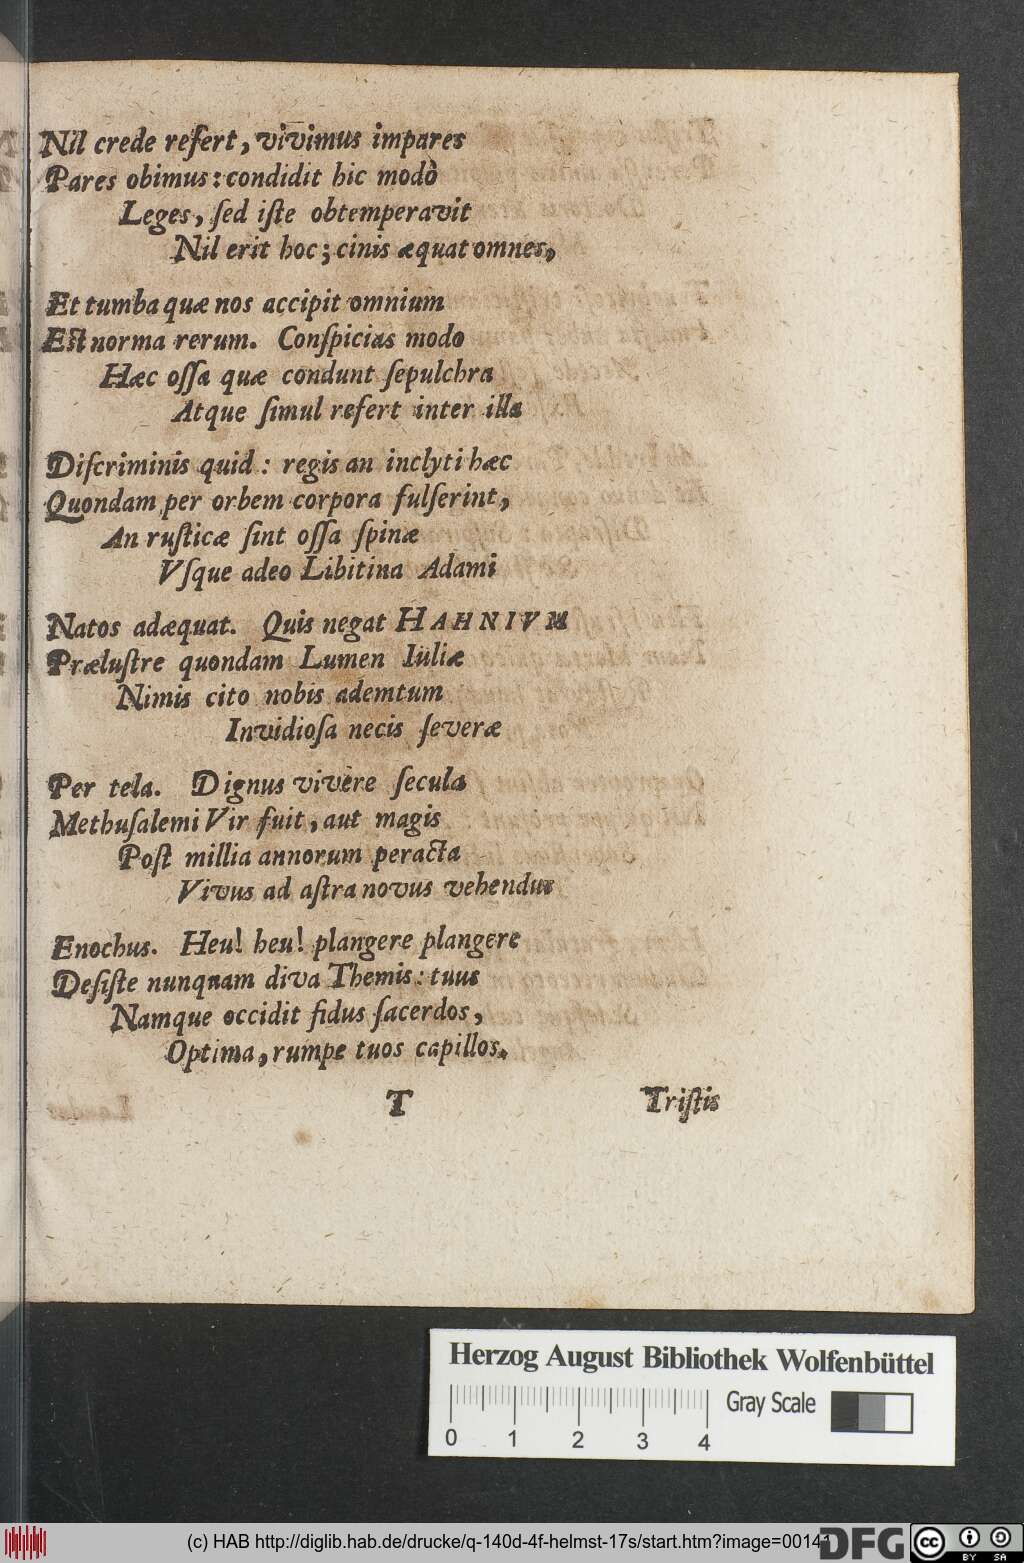 Nil crede refert, vivimus impares
Pares obimus: condidit hic modò
Leges, ſed iſte obtemperavit
Nil erit hoc; cinis æquat omnes,
Et tumba quæ nos accipit omnium
Eſt norma rerum. Conſpicias modo
Hæc oſſa quæ condunt ſepulchra
Atque ſimul refert inter illa
Diſcriminis quid: regis an inclyti hæc
Quondam per orbem corpora fulſerint,
An ruſticæ ſint oſſa ſpinæ
Vſque adeo Libitina Adami
Natos adæquat. Quis negat HAHNIVM
Præluſtre quondam Lumen Iüliæ
Nimis cito nobis ademtum
Invidioſa necis ſeveræ
Per tela. Dignus vivere ſecula
Methuſalemi Vir fuit, aut magis
Poſt millia annorum peracta
Vivus ad aſtra novus vehendus
Enochus. Heu! heu! plangere plangere
Deſiſte nunquam diva Themis: tuus
Namque occidit fidus ſacerdos,
Optima, rumpe tuos capillos.
T Triſtis
Herzog August Bibliothek Wolfenbüttel
Gray Scale
0 1 2 3 4
(c) HAB http://diglib.hab.de/drucke/q-140d-4f-helmst-17s/start.htm?image=00141
DFG
cc BY SA